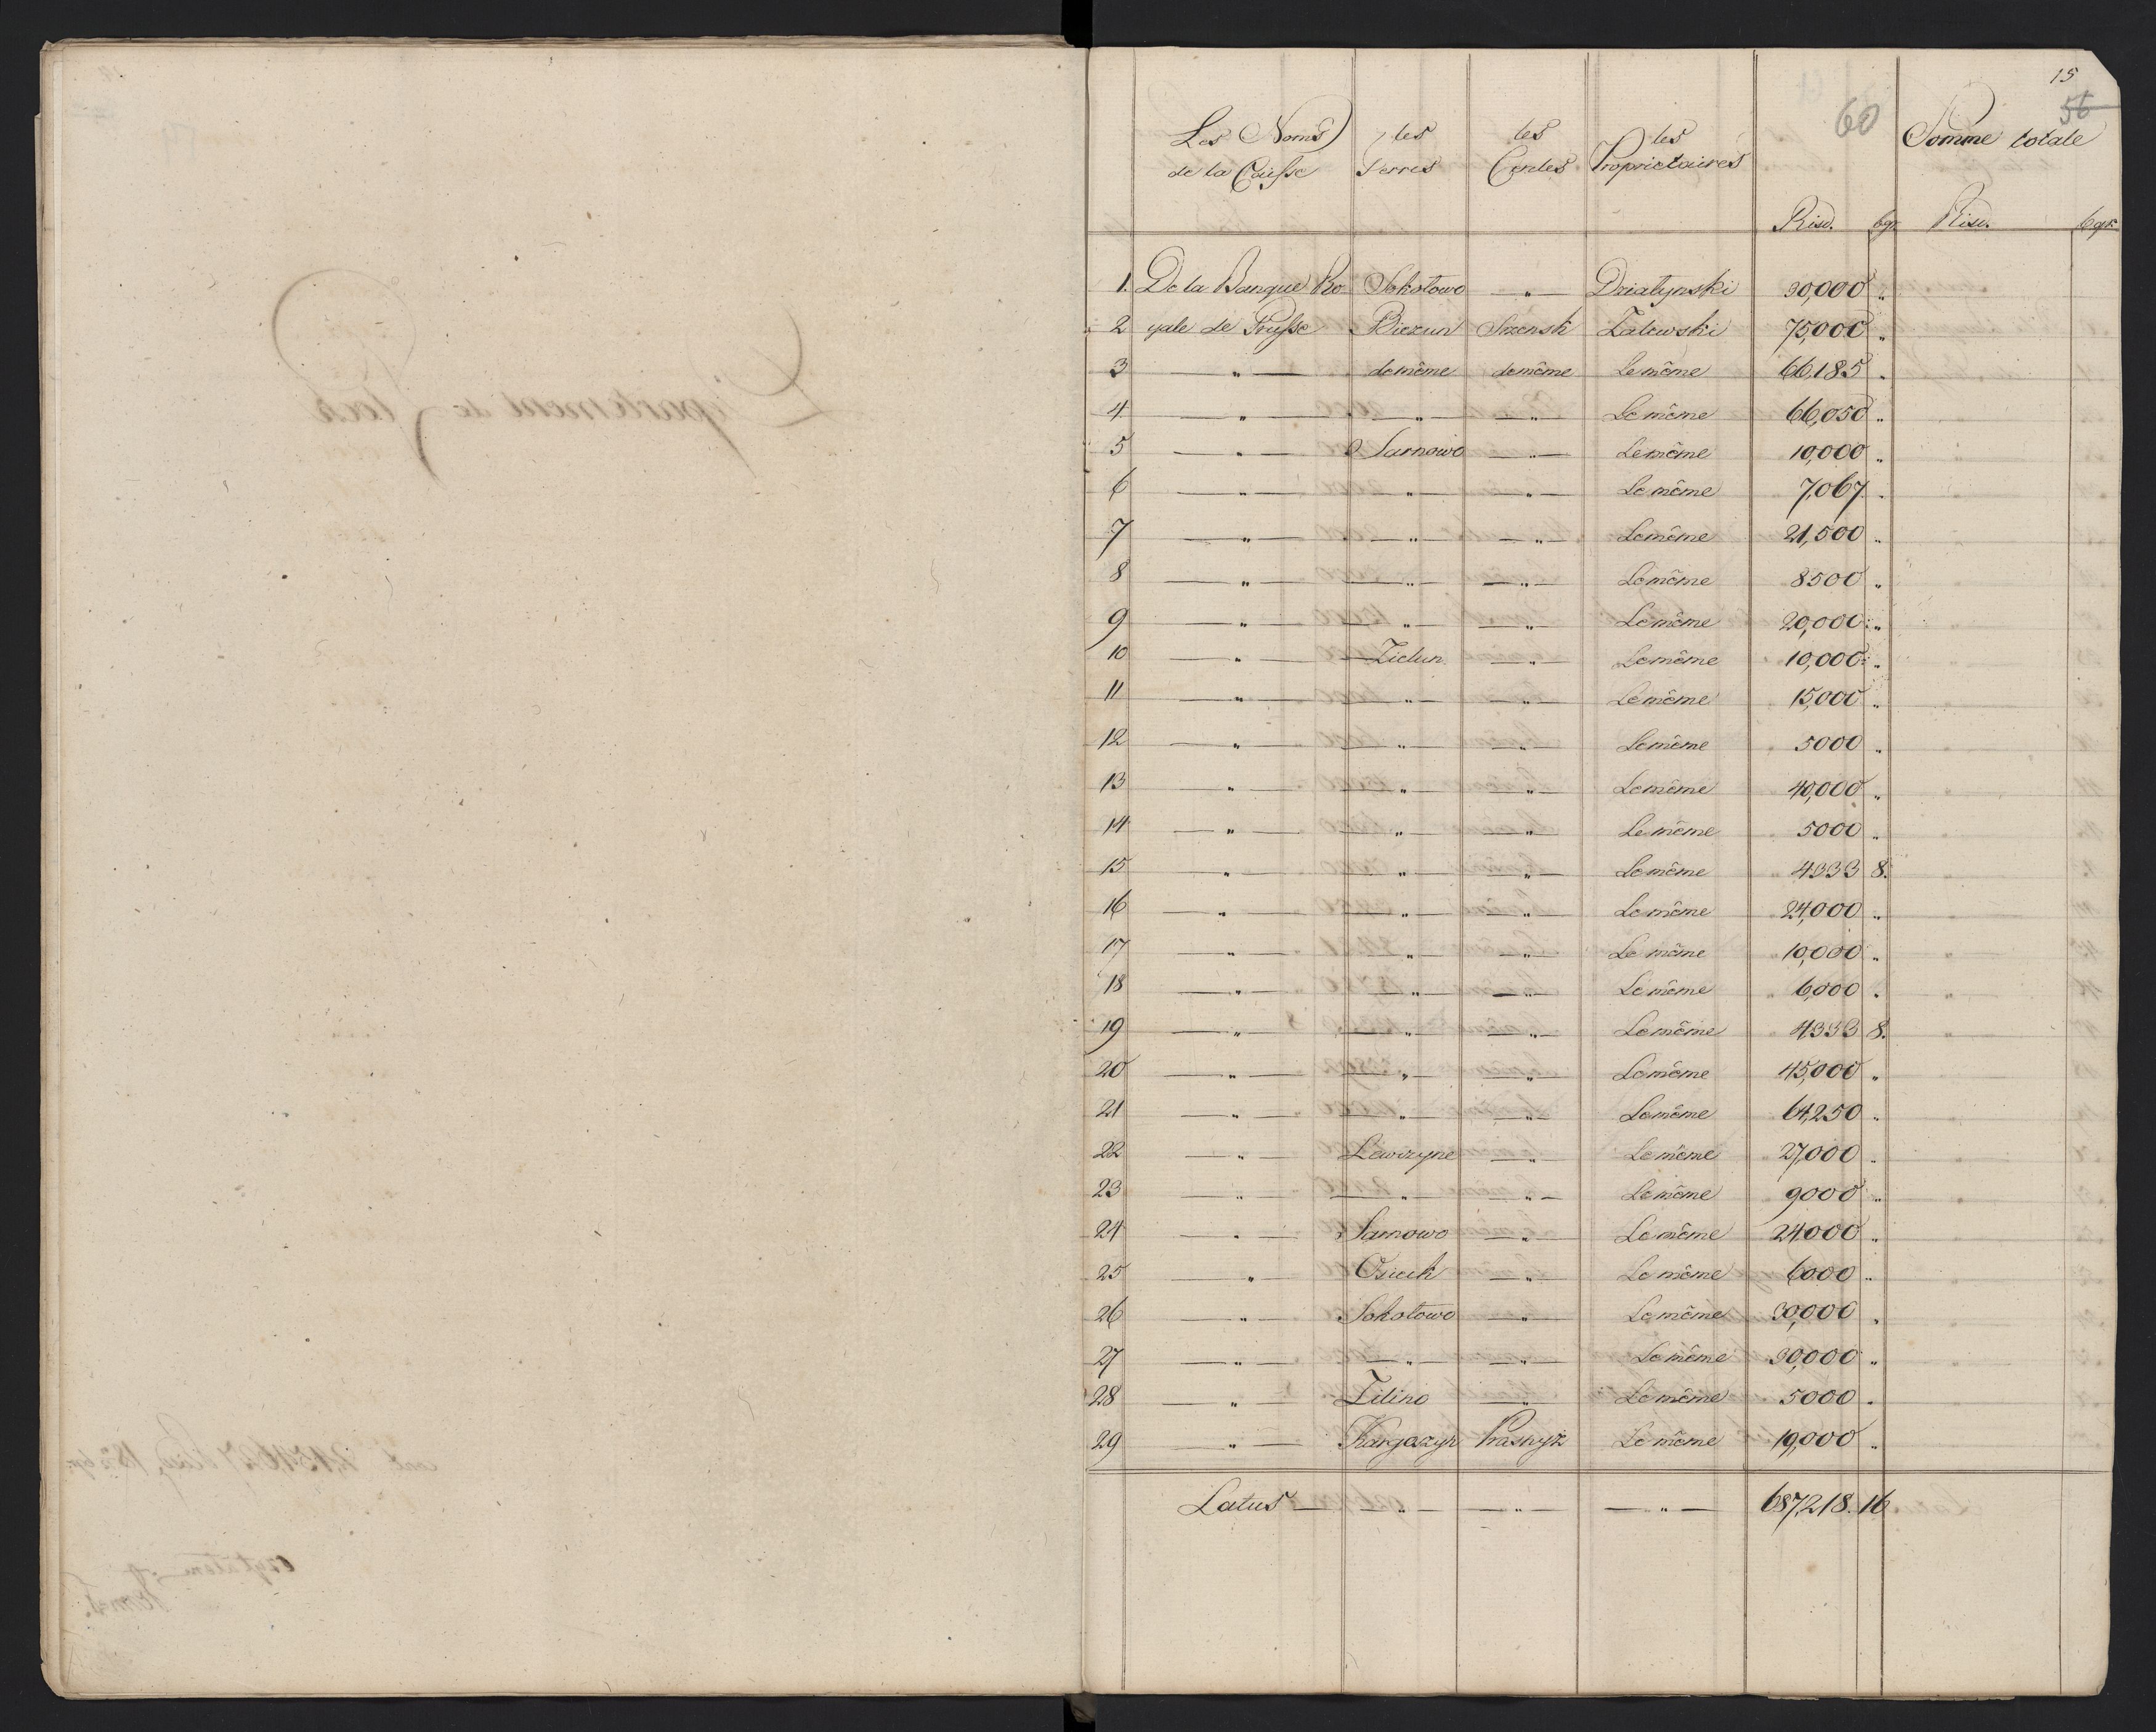 15
56
60
Les Noms de la Caisse | les Terres | les Cercles | les Proprietaires | | Somme totale
Risd. | bgr | Risd. | bgr.
1. De la Banque Ro- | Sokołowo | " | Działynski | 30,000 | "
2 yale de Prusse | Biezun | Srzensk | Zalewski | 75,000 | "
3 " | de même | de même | Le même | 66,185 | "
4 " | " | " | Le même | 66,050 | "
5 " | Sarnowo | " | Le même | 10,000 | "
6 " | " | " | Le même | 7,067 | "
7 " | " | " | Le même | 21,500 | "
8 " | " | " | Le même | 8500 | "
9 " | " | " | Le même | 20,000 | "
10 " | Zielun | " | Le même | 10,000 | "
11 " | " | " | Le même | 15,000 | "
12 " | " | " | Le même | 5000 | "
13 " | " | " | Le même | 40,000 | "
14 " | " | " | Le même | 5000 | "
15 " | " | " | Le même | 4333 | 8.
16 " | " | " | Le même | 24,000 | "
17 " | " | " | Le même | 10,000 | "
18 " | " | " | Le même | 6,000 | "
19 " | " | " | Le même | 4333 | 8.
20 " | " | " | Le même | 45,000 | "
21 " | " | " | Le même | 64,250 | "
22 " | Lawizyne | " | Le même | 27,000 | "
23 " | " | " | Le même | 9000 | "
24 " | Sarnowo | " | Le même | 24,000 | "
25 " | Osieck | " | Le même | 6000 | "
26 " | Sokołowo | " | Le même | 30,000 | "
27 " | " | " | Le même | 30,000 | "
28 " | Zilino | " | Le même | 5000 | "
29 " | Kargozyn | Prasnyż | Le même | 19,000 | "
Latus | " | " | " | 687,218. | 16